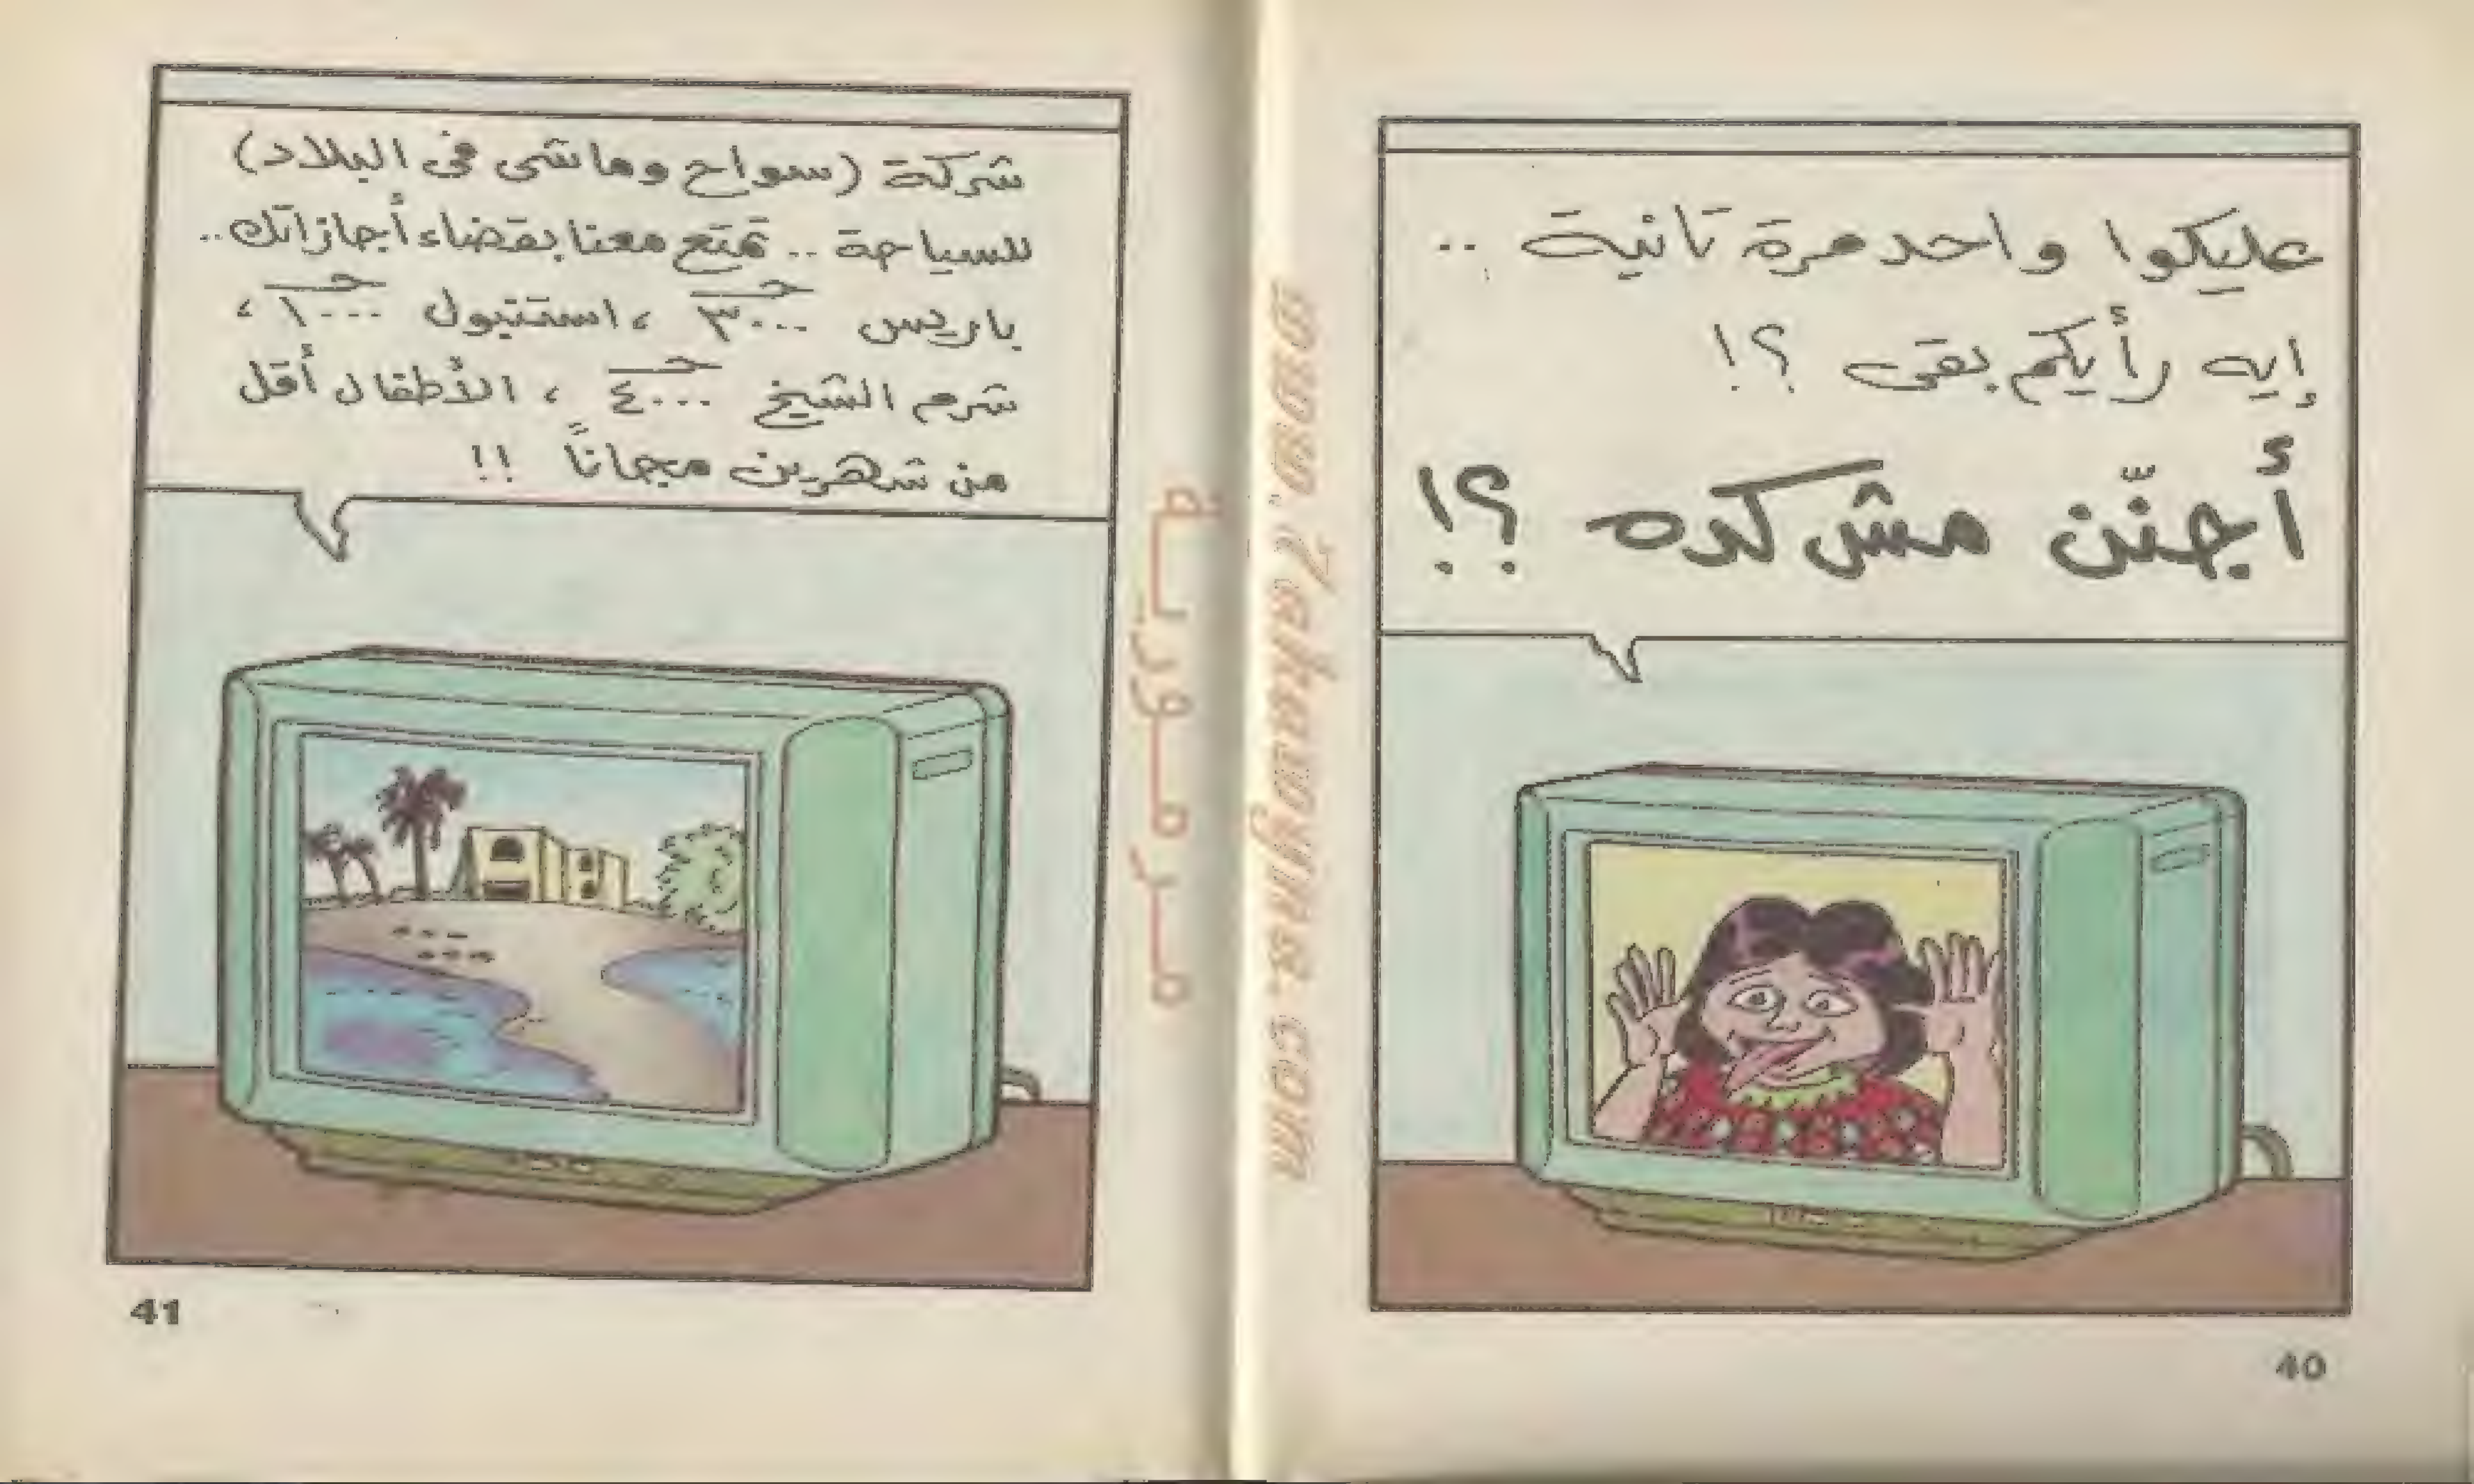 عليكوا واحد مرة تانية ..
إيه رأيكم بقى ؟!
أجنّن مش كده ؟!
40
شركة (سواح وماشى فى البلاد)
للسياحة .. تمتع معنا بقضاء أجازاتك ..
باريس ٣٠٠٠ جـ ، استنبول ١٠٠٠ جـ ،
شرم الشيخ ٤٠٠٠ جـ ، الأطفال أقل
من شهرين مجاناً !!
41
مرمورية
www.7ahawyna.com